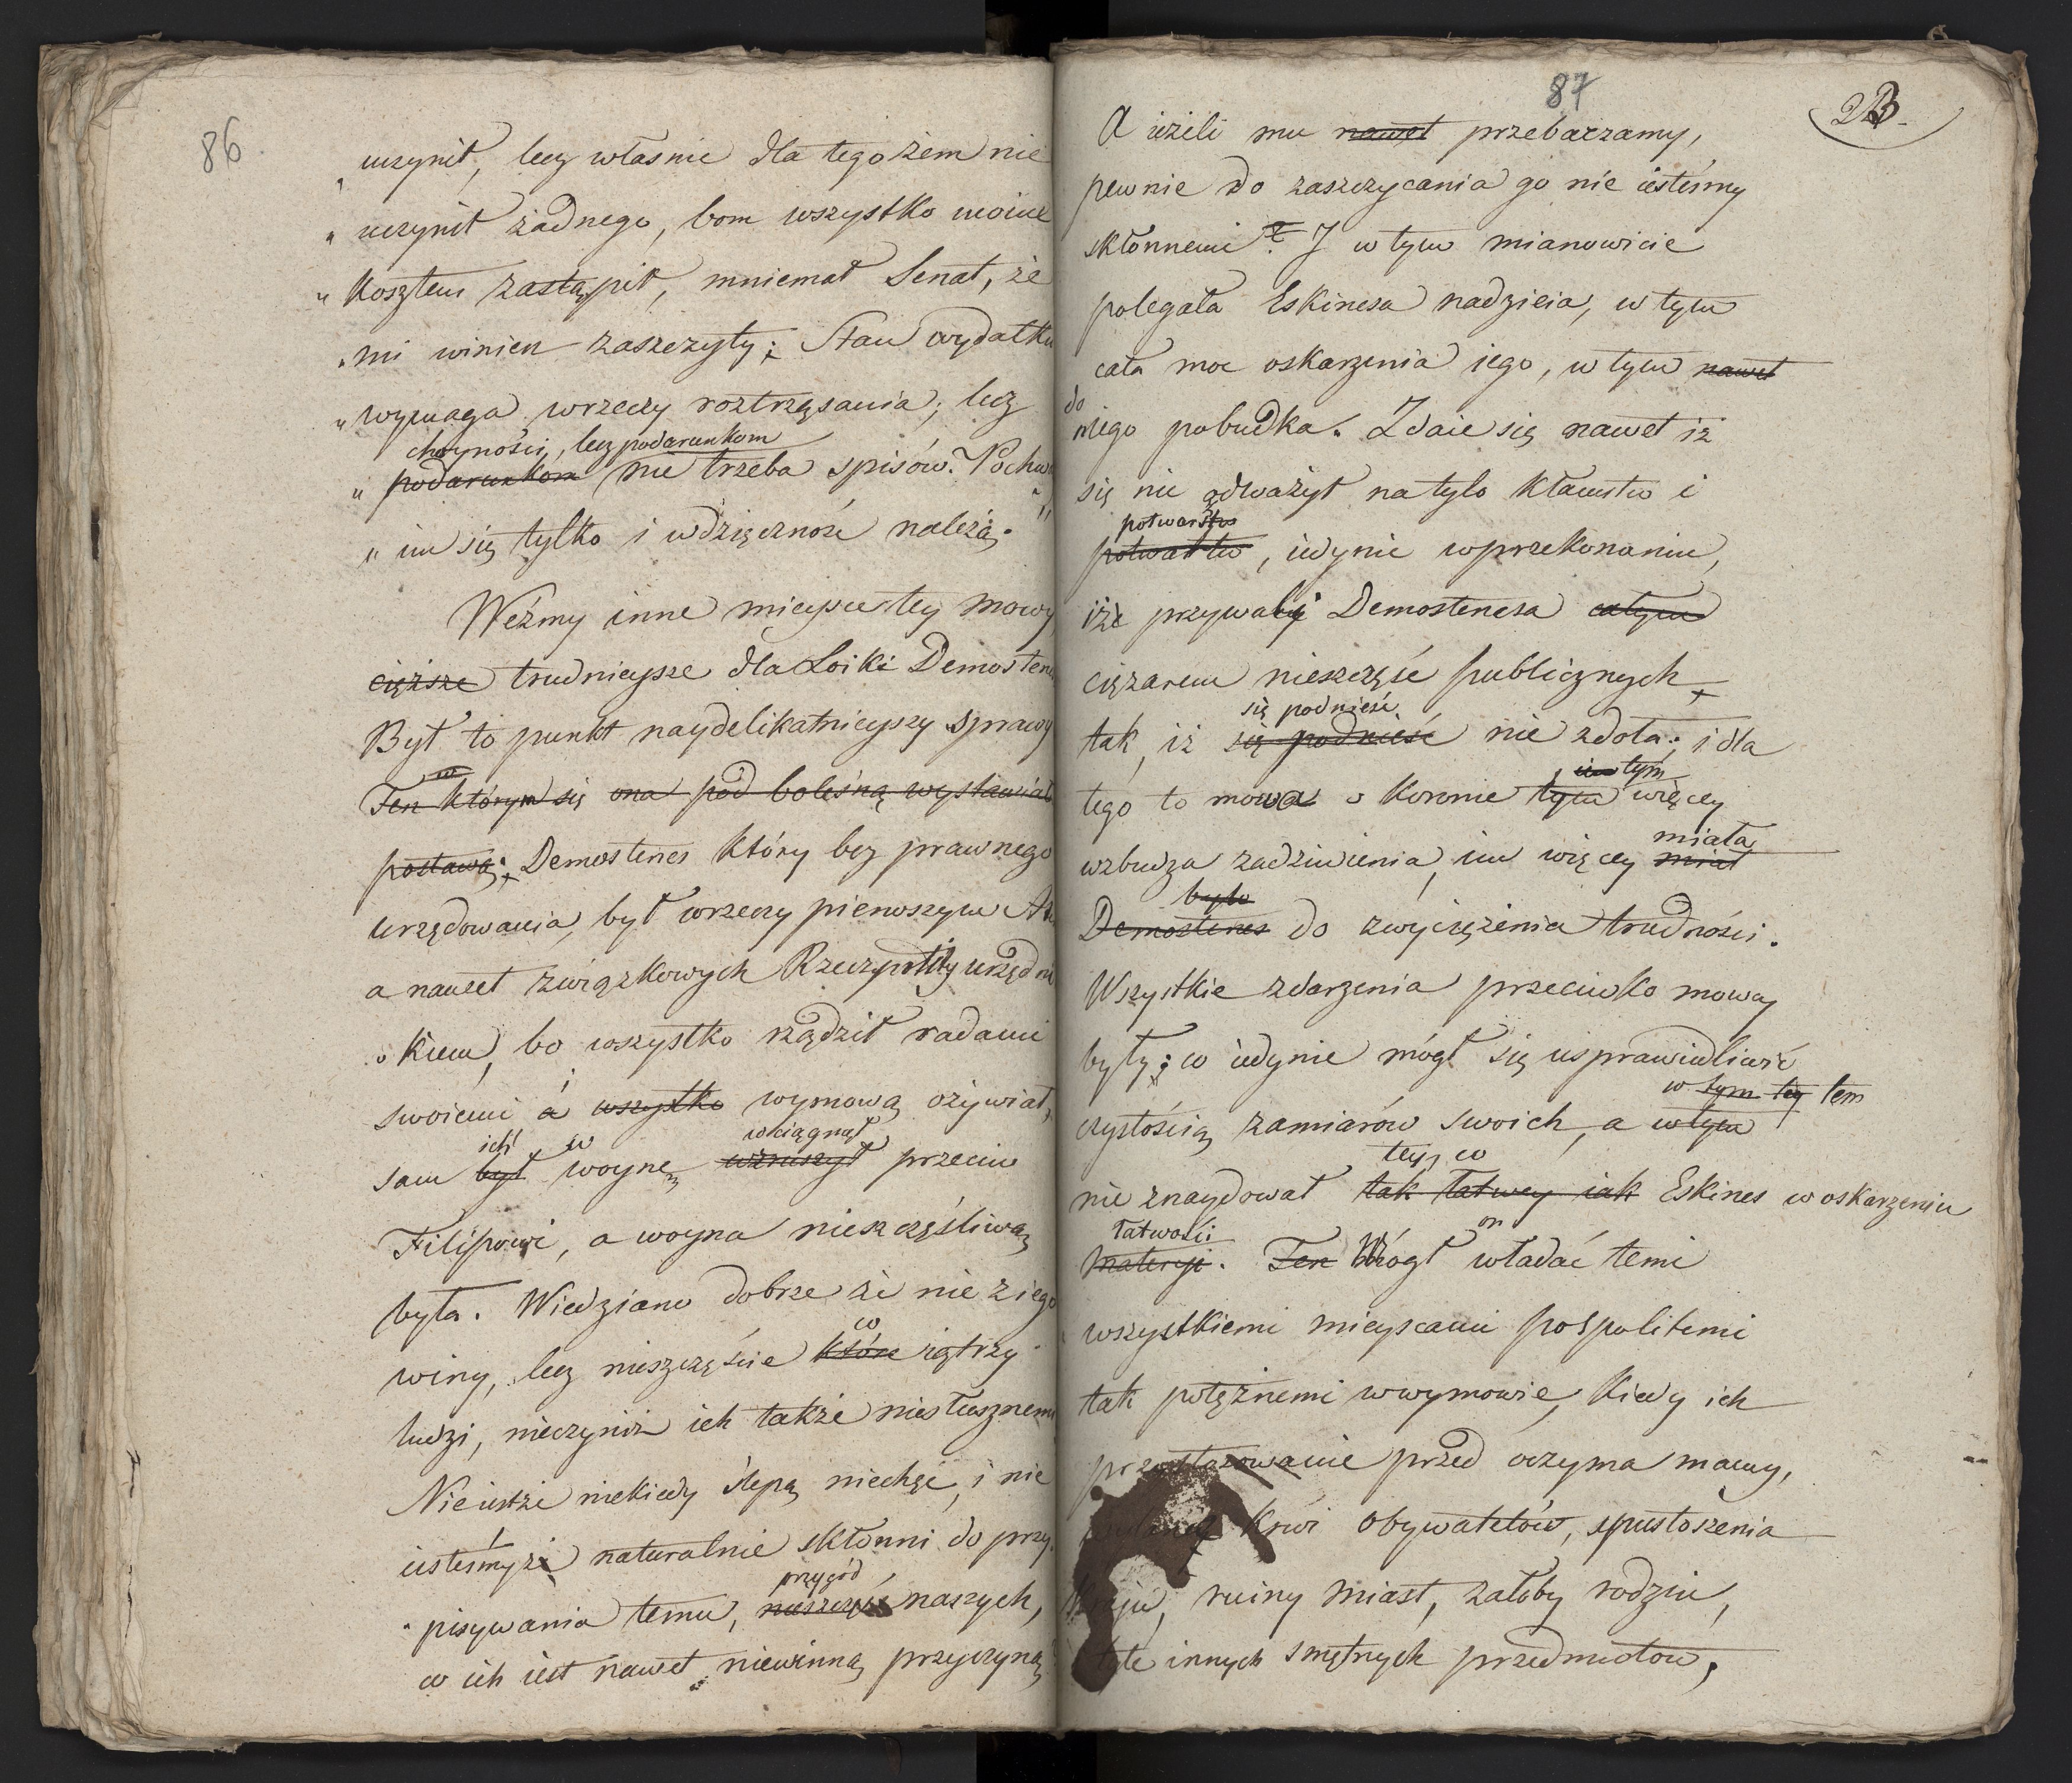 86
„ uczynił, lecz własnie dla tego żem nie
„ uczynił żadnego, bom wszystko moim
„ kosztem zastąpił, mniemał Senat, że
„ mi winien zaszczyty; Stan wydatku
„ wymaga wrzeczy roztrząsania; lecz
choyności, lecz podarunkom
„ podarunkom nie trzeba spisów. Pochw
„ im się tylko i wdzięczność należą. "
Weźmy inne mieysce tey mowy
cięższe trudnieysze dla Loiki Demosten
Był to punkt naydelikatnieyszy sprawy
w
Ten którym się ona pod bolesną wystawiał
postawą; Demostenes który bez prawnego
urzędowania, był wrzeczy pierwszym
a nawet związkowych Rzeczypltéy urzędni
kiem, bo wszystko rządził radami
i
swoiemi a wszystko wymową ożywiał,
ich w wciągnął
sam był woynę wzruszył przeciw
Filipowi, a woyna nieszczęśliwą
była. Wiedziano dobrze że nie z iego
co
winy, lecz nieszczęście które iątrzy
ludzi, nieczyniż ich także niesłusznemi
Nieiestże niekiedy ślepą niechęć, i nie
iesteśmyże naturalnie skłonni do przy
przygód
pisywania temu, nieszczęść naszych,
co ich iest nawet niewinną przyczyną
87
23.
A ieżeli mu nawet przebaczamy,
pewnie do zaszczycania go nie iesteśmy
skłonnemi? I w tym mianowicie
polegała Eskinesa nadzieia, w tym
cała moc oskarzenia iego, w tym nawet
do
niego pobudka. Zdaie się nawet iż
się nie odważył na tylo kłamstw i
potwarstw
potwartw, iedynie wprzekonaniu,
iże przywali Demostenesa całym
ciężarem nieszczęść publicznych
się podnieść
tak, iż się podnieść nie zdoła; i dla
im tym
tego to mowa o Koronie tym więcey
miała
wzbudza zadziwienia, im więcey miał
było
Demostenes do zwyciężenia trudności.
Wszystkie zdarzenia przeciwko mowcy
były; co iedynie mógł się usprawiedliwić
w tym tey tem
czystością zamiarów swoich, a wtym
tey, co
nie znaydował tak łatwey iak Eskines w oskarzeniu
łatwości on
materyi. Ten Mógł władać temi
wszystkiemi mieyscami pospolitemi
tak potężnemi wwymowie, kiedy ich
przed oczyma mamy,
krwi obywatelów, spustoszenia
kraju, ruiny miast, żałoby rodzin,
tyle innych smętnych przedmiotów,